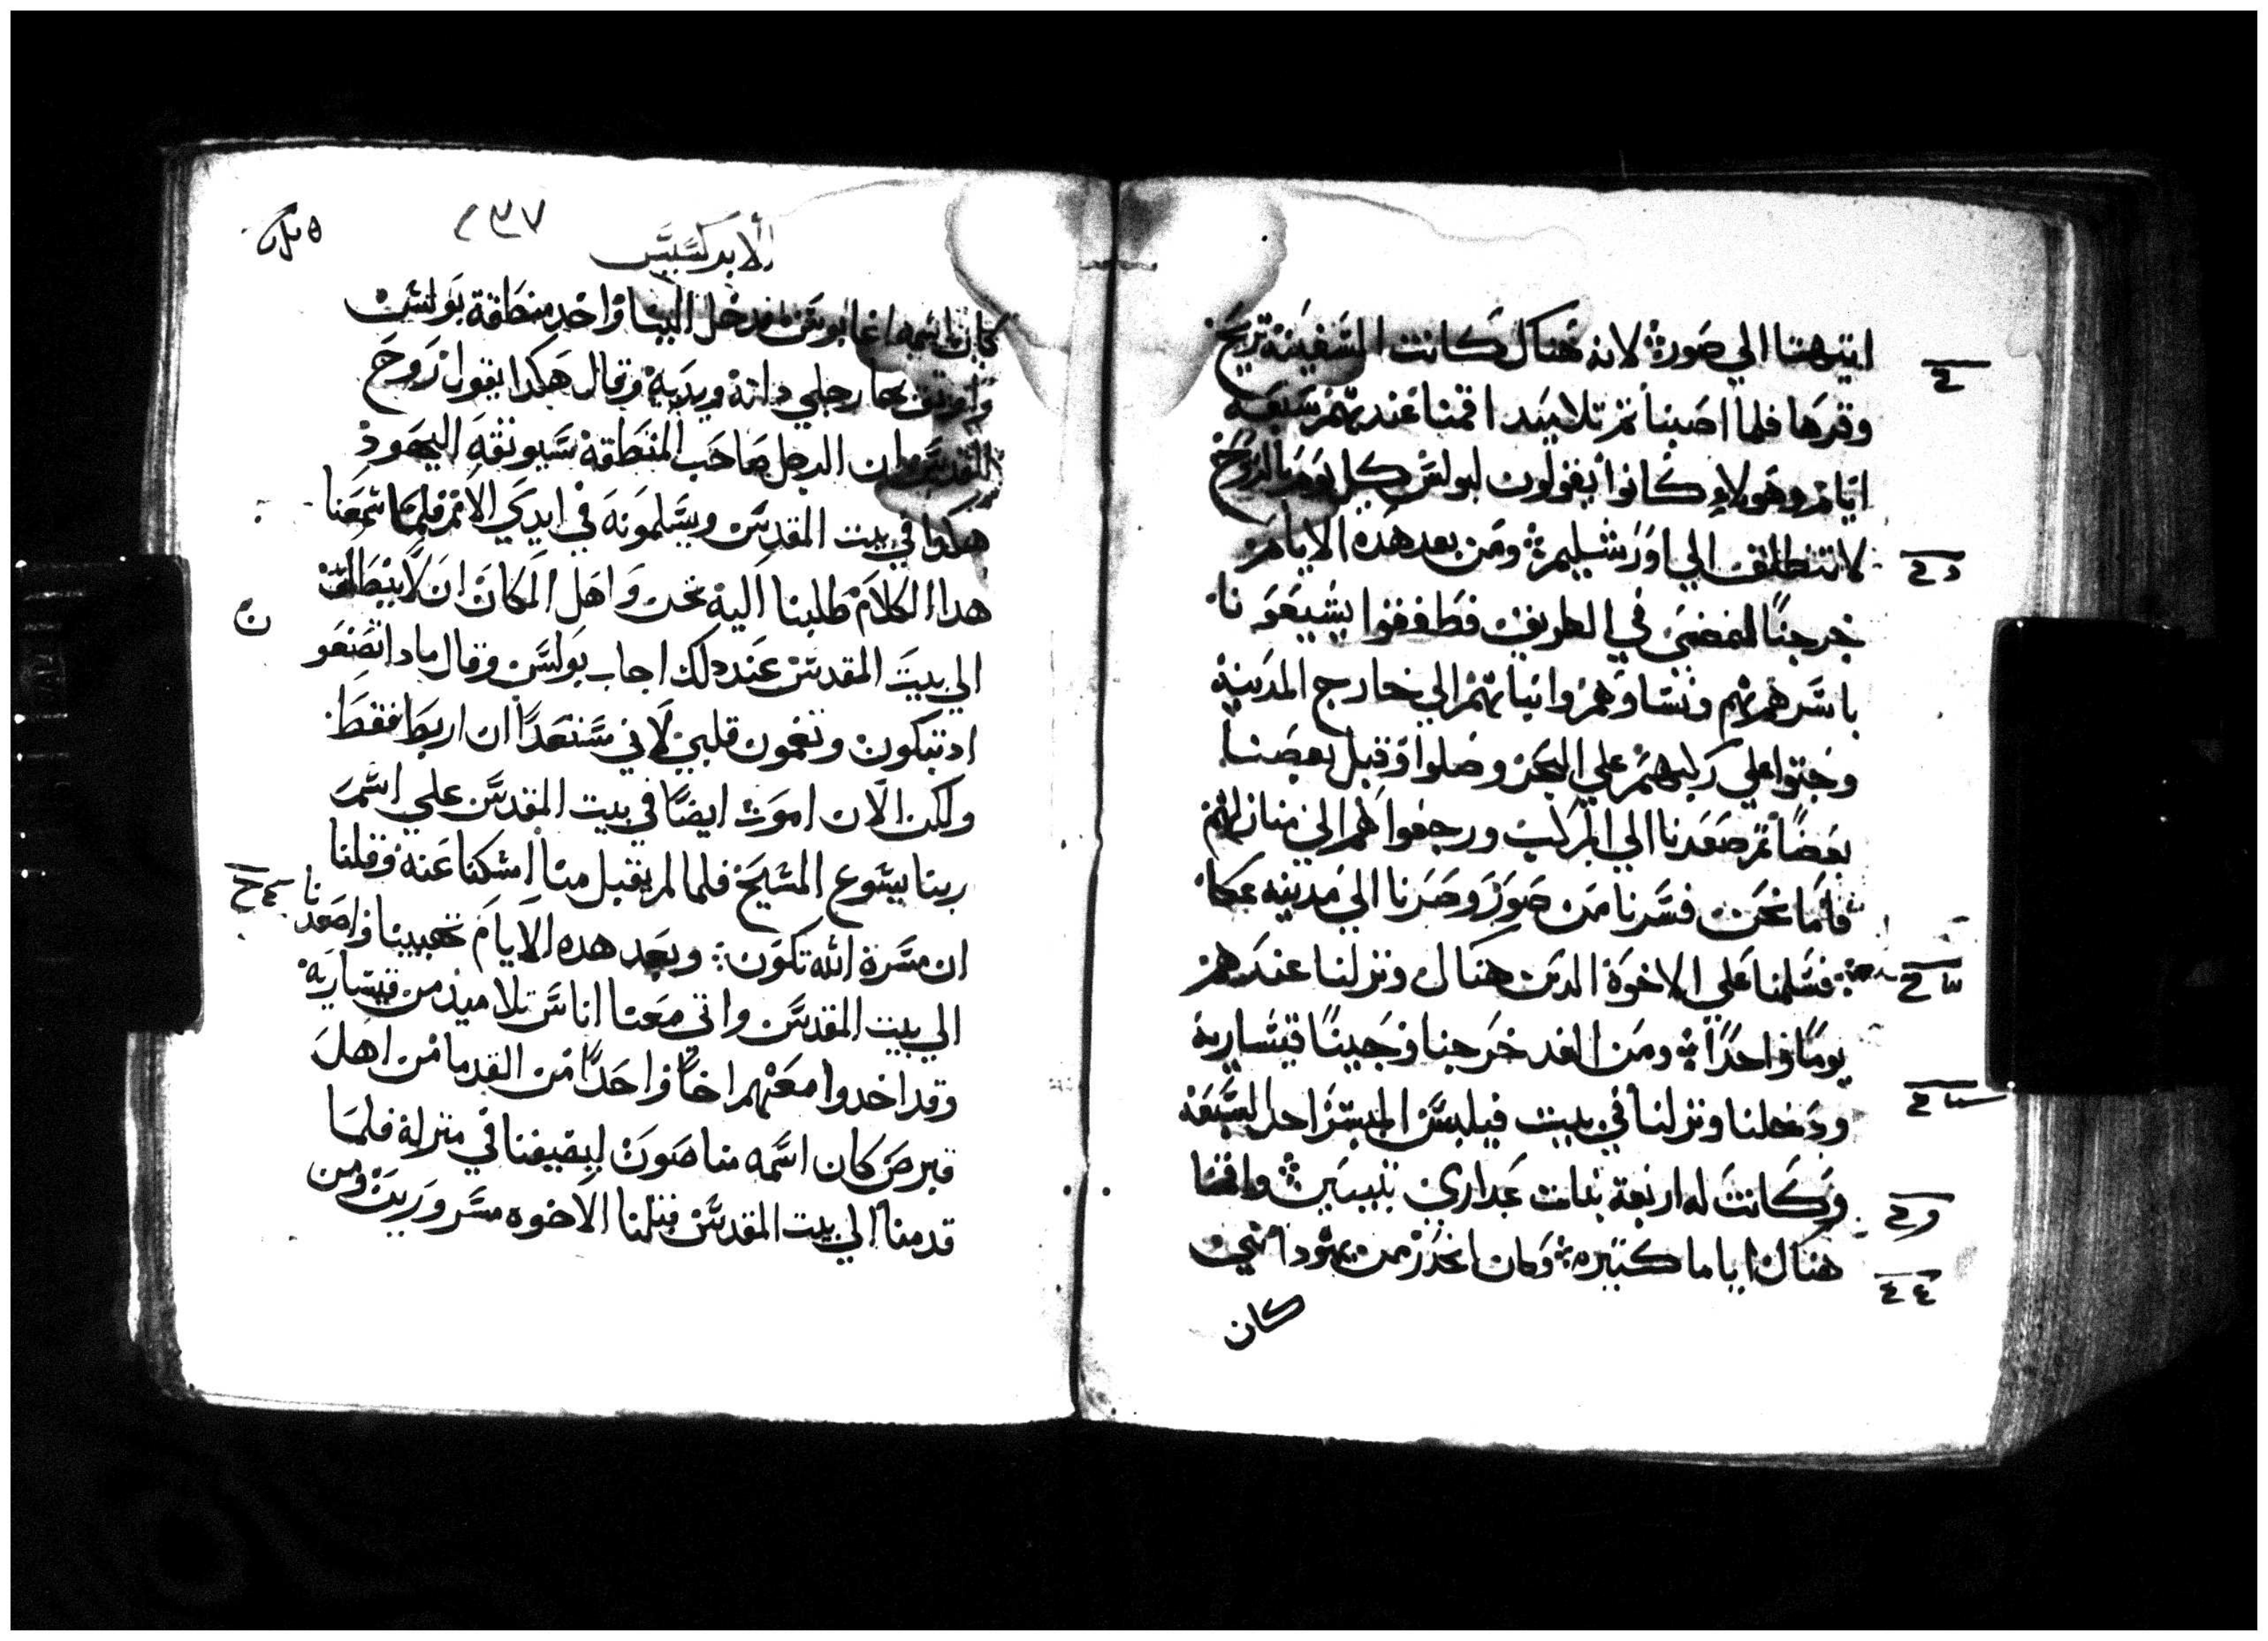 انتهينا الي صور لانه هناك كانت السفينة تريح
وقرها فلما اصبنا ثم تلاميد اقمنا عندهم سبعة
ايام وهولاء كانوا يقولون لبولس كل يوم بالروح
لا تنطلق الي اورشليم ومن بعد هده الايام
خرجنا لنمضي في الطريق فطفقوا يشيعونا
باسرهم هم ونساوهم وابناتهم الي خارج المدينة
وجثوا علي ركبهم علي البحر وصلوا وقبل بعضنا
بعضا ثم صعدنا الي المركب ورجعوا هم الي منازلهم
فاما نحن فسرنا من صور وصرنا الي مدينه عكا
فسلمنا علي الاخوة الدين هناك ونزلنا عندهم
يوما واحدا ومن الغد خرجنا وجينا قيسارية
ودخلنا ونزلنا في بيت فيلبس المبشر احد السبعة
وكانت له اربعة بنات عداري نبيين واقمنا
هناك اياما كتيره وكان انحدر من يهودا نبي
كان
٢٣٧
الابركسيس
كان اسمه اغابوس فدخل الينا واخد منطقة بولس
واوتق بها رجلي داته ويديه وقال هكدا يقول روح
القدس ان الرجل صاحب المنطقة سيوثقه اليهود
هكدا في بيت المقدس ويسلمونه في ايدي الامم فلما سمعنا
هدا الكلام طلبنا اليه نحن واهل المكان ان لا ينطلق
الي بيت المقدس عند دلك اجاب بولس وقال مادا تصنعو
اد تبكون وتغمون قلبي لاني مستعدا ان اربط فقط
ولكن الان اموت ايضا في بيت المقدس علي اسم
ربنا يسوع المسيح فلما لم يقبل منا امسكنا عنه وقلنا
ان مسرة الله تكون وبعد هده الايام تهيينا واصعدنا
الي بيت المقدس واتي معنا اناس تلاميذ من قيسارية
وقد اخدوا معهم اخا واحدا من القدما من اهل
قبرص كان اسمه مناصون ليضيفنا في منزلة فلما
قدمنا الي بيت المقدس قبلنا الاخوه مسرورين ومن